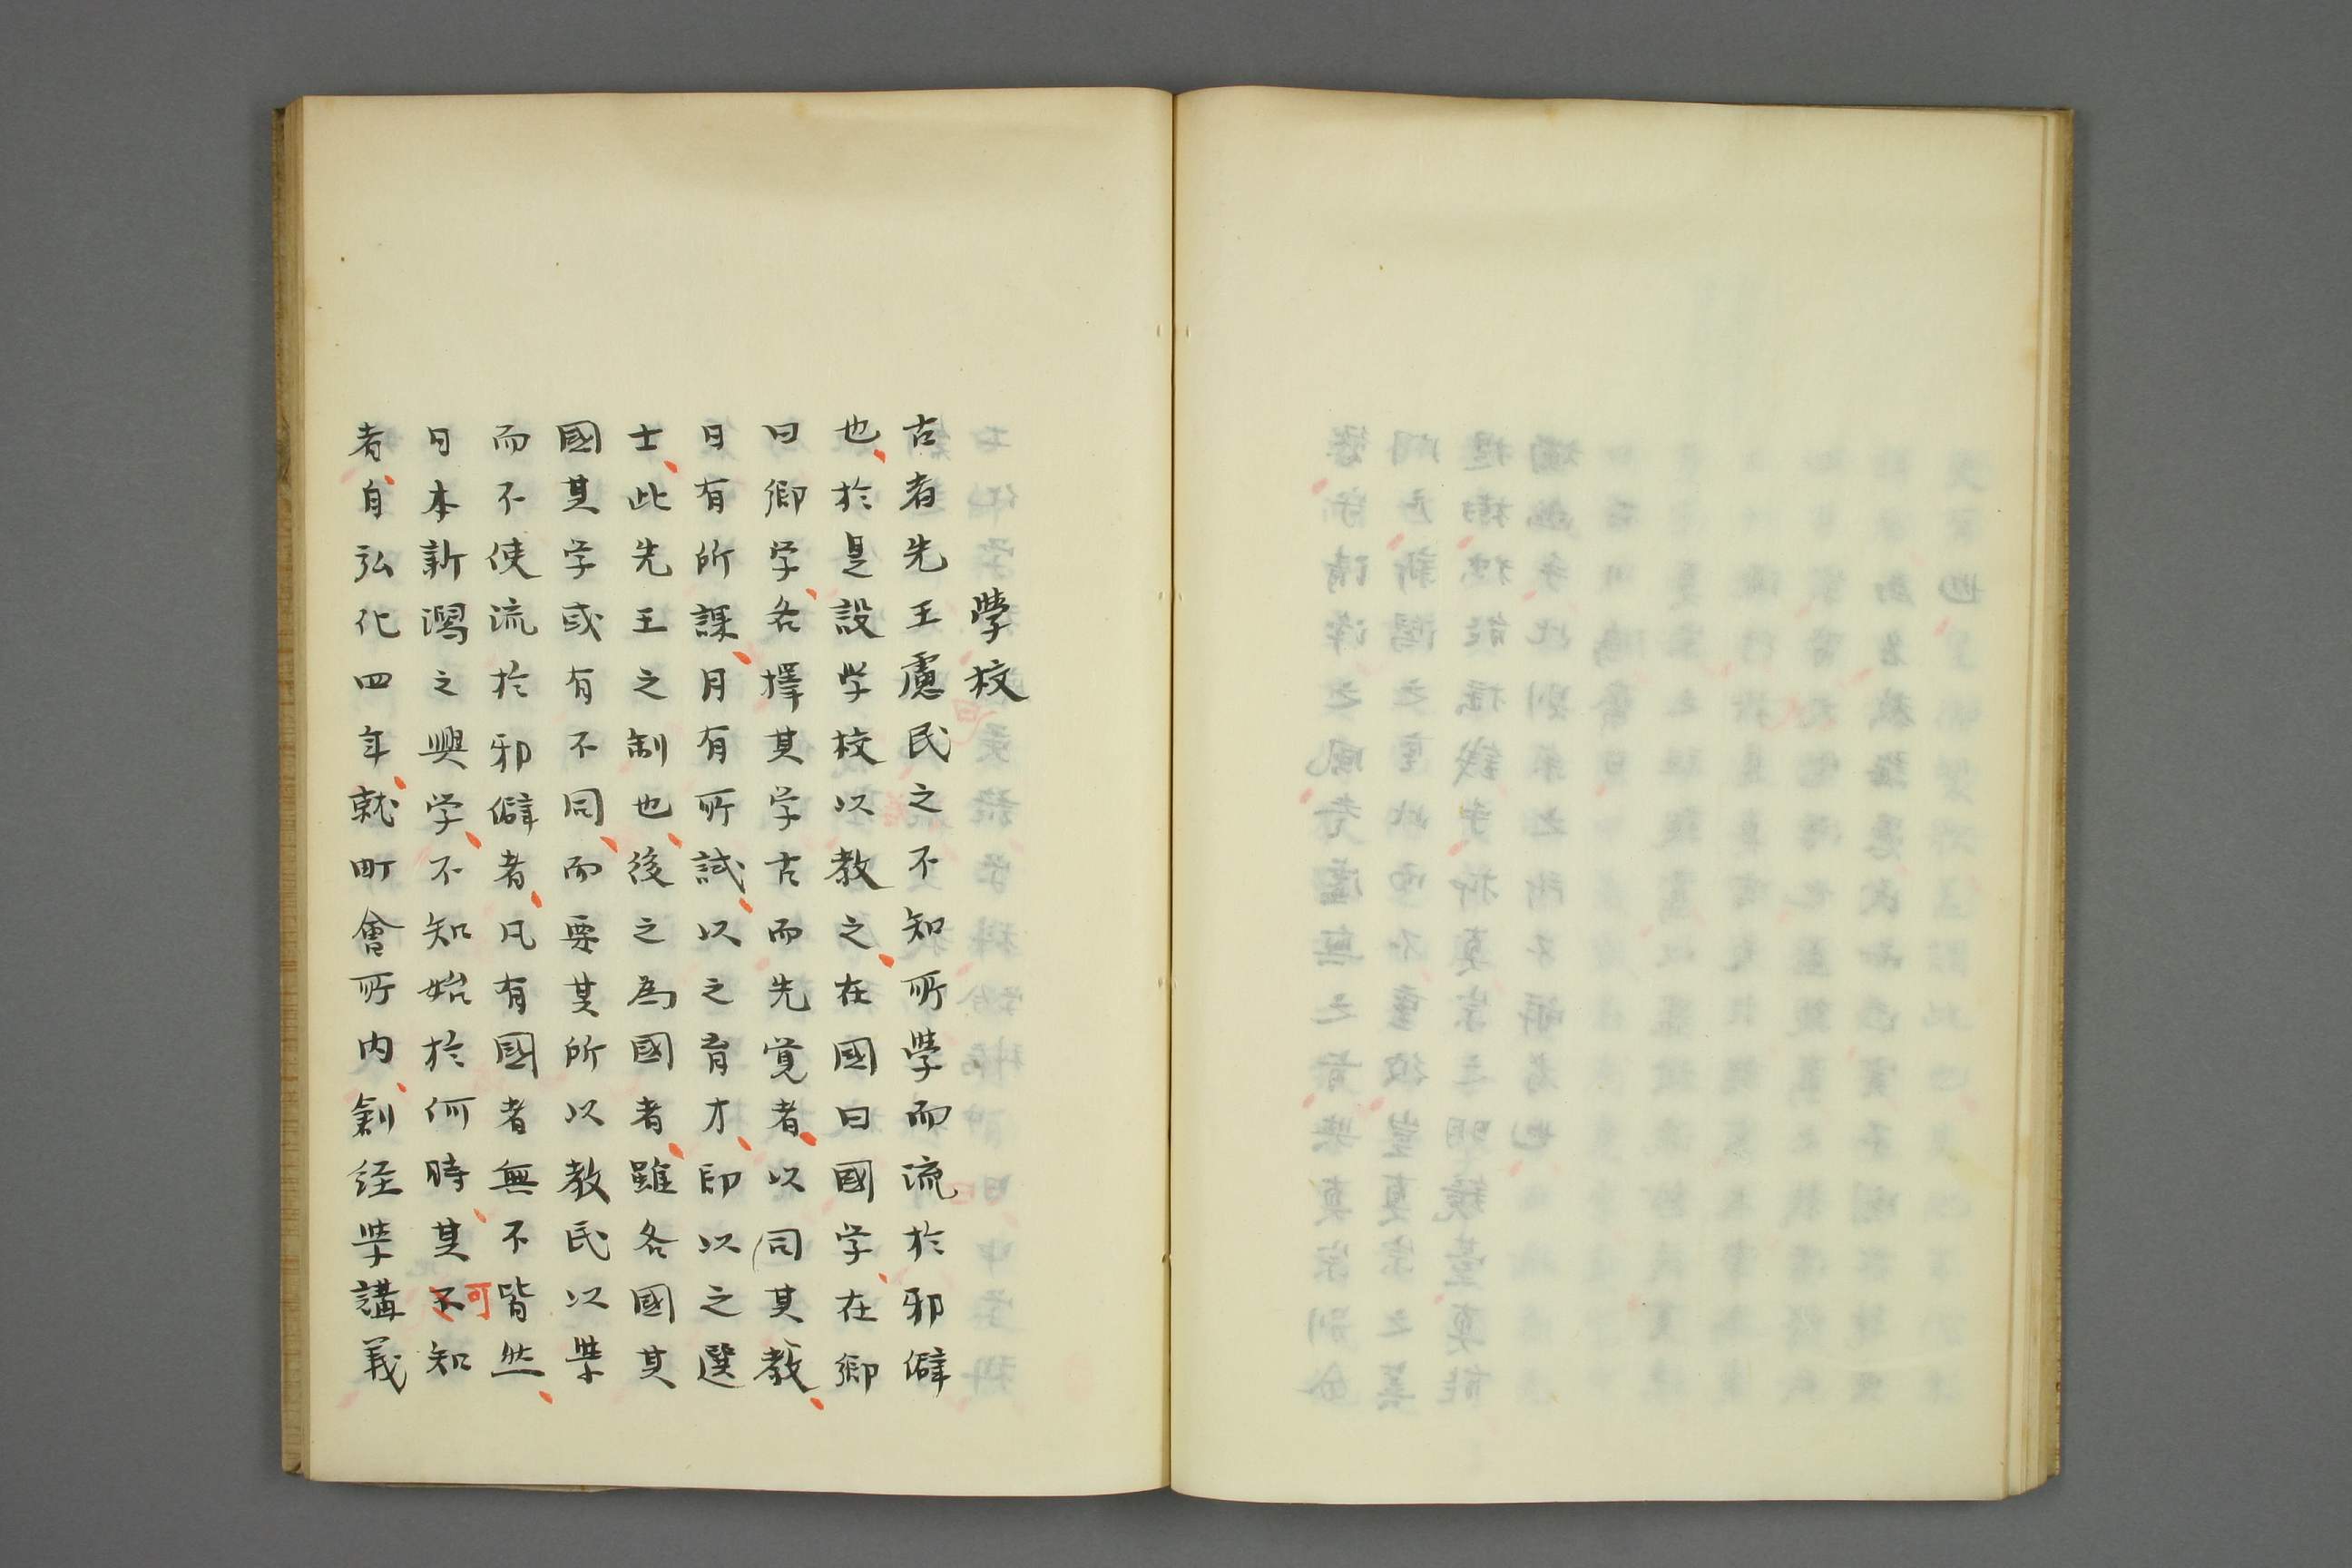 學校
古者先王慮民之不知所學而流於邪僻
也於是設学校以教之在國曰國学在鄉
曰鄉学各擇其学古而先覚者以同其教
日有所課月有所試以之育才即以之選
士此先王之制也後之為國者雖各國其
國其学或有不同而要其所以教民以學
而不使流於邪僻者凡有國者無不皆然
日本新潟之興学不知始於何時其不知
可
者自弘化四年就町會所内創経学講義